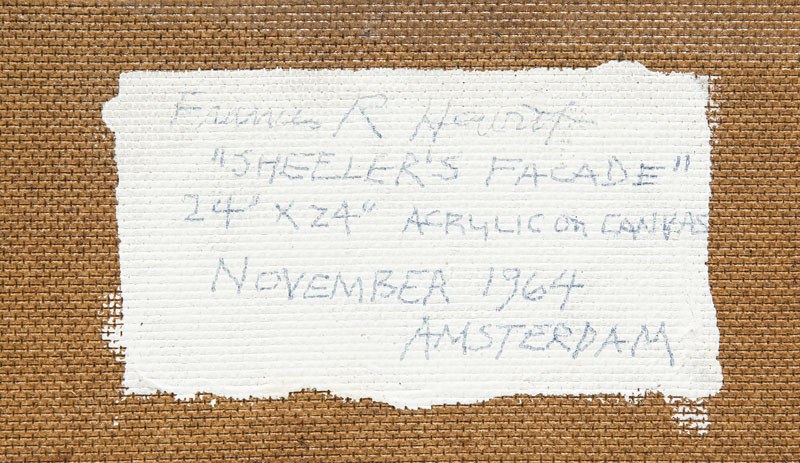 Francis R Hewitt
"SHEELER'S FACADE"
24" X 24" ACRYLIC on CANVAS
NOVEMBER 1964
AMSTERDAM